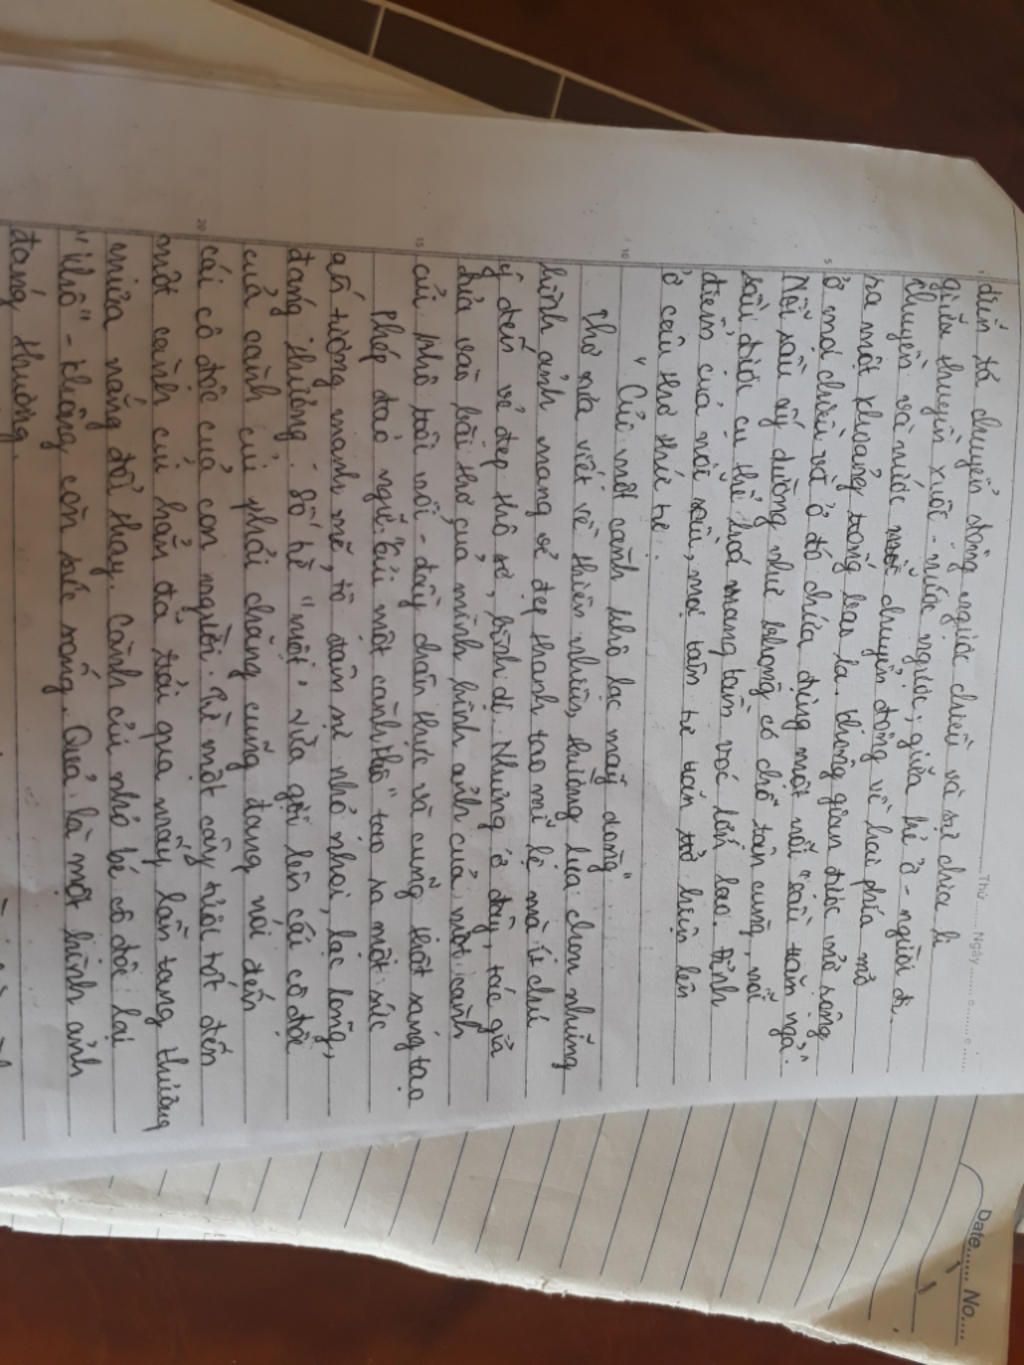 Thứ ........ Ngày ........
diễn tả chuyển động ngược chiều và sự chia li
giữa thuyền xuôi - nước ngược, giữa kẻ ở - người đi.
Thuyền và nước một chuyển động về hai phía mở
ra một khoảng trống bao la. Không gian được mở rộng
ở mọi chiều và ở đó chứa đựng một nỗi "sầu trăm ngả".
Nỗi sầu ấy dường như không có chỗ tận cùng, nỗi
sầu được cụ thể hoá mang tầm vóc lớn lao. Đỉnh
điểm của nỗi sầu, mọi tâm tư bản thể hiện lên
ở câu thơ thứ tư:
" Củi một cành khô lạc mấy dòng"
Thơ xưa viết về thiên nhiên, thường lựa chọn những
hình ảnh mang vẻ đẹp thanh tao mĩ lệ mà ít chú
ý đến vẻ đẹp thô sơ, bình dị. Nhưng ở đây, tác giả
đưa vào bài thơ của mình hình ảnh của một cành
củi khô trôi nổi - đầy chân thực và cũng thật sáng tạo
Phép đảo ngữ "củi một cành khô" tạo ra một sức
ấn tượng mạnh mẽ, tô đậm sự nhỏ nhoi, lạc lõng,
đáng thương. Số từ "một" vừa gợi lên cái cô độc
của cành củi phải chăng cũng đang nói đến
cái cô độc của con người. Từ một cây tươi tốt đến
một cành củi hẳn đã trải qua mấy lần tang thương
mưa nắng đổi thay. Cành củi nhỏ bé cô độc lại
"khô" - không còn sức sống. Quả là một hình ảnh
đáng thương.
5
10
15
20
Date....... No....